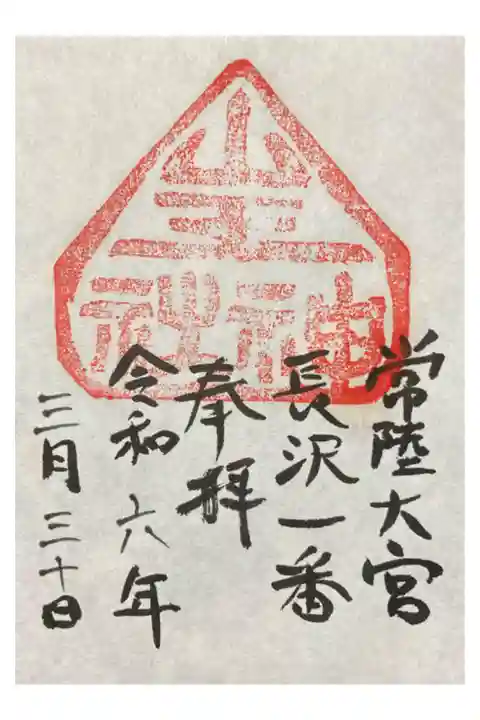 山王神社
常陸大宮
長沢一番
奉拝
令和六年
三月三十日